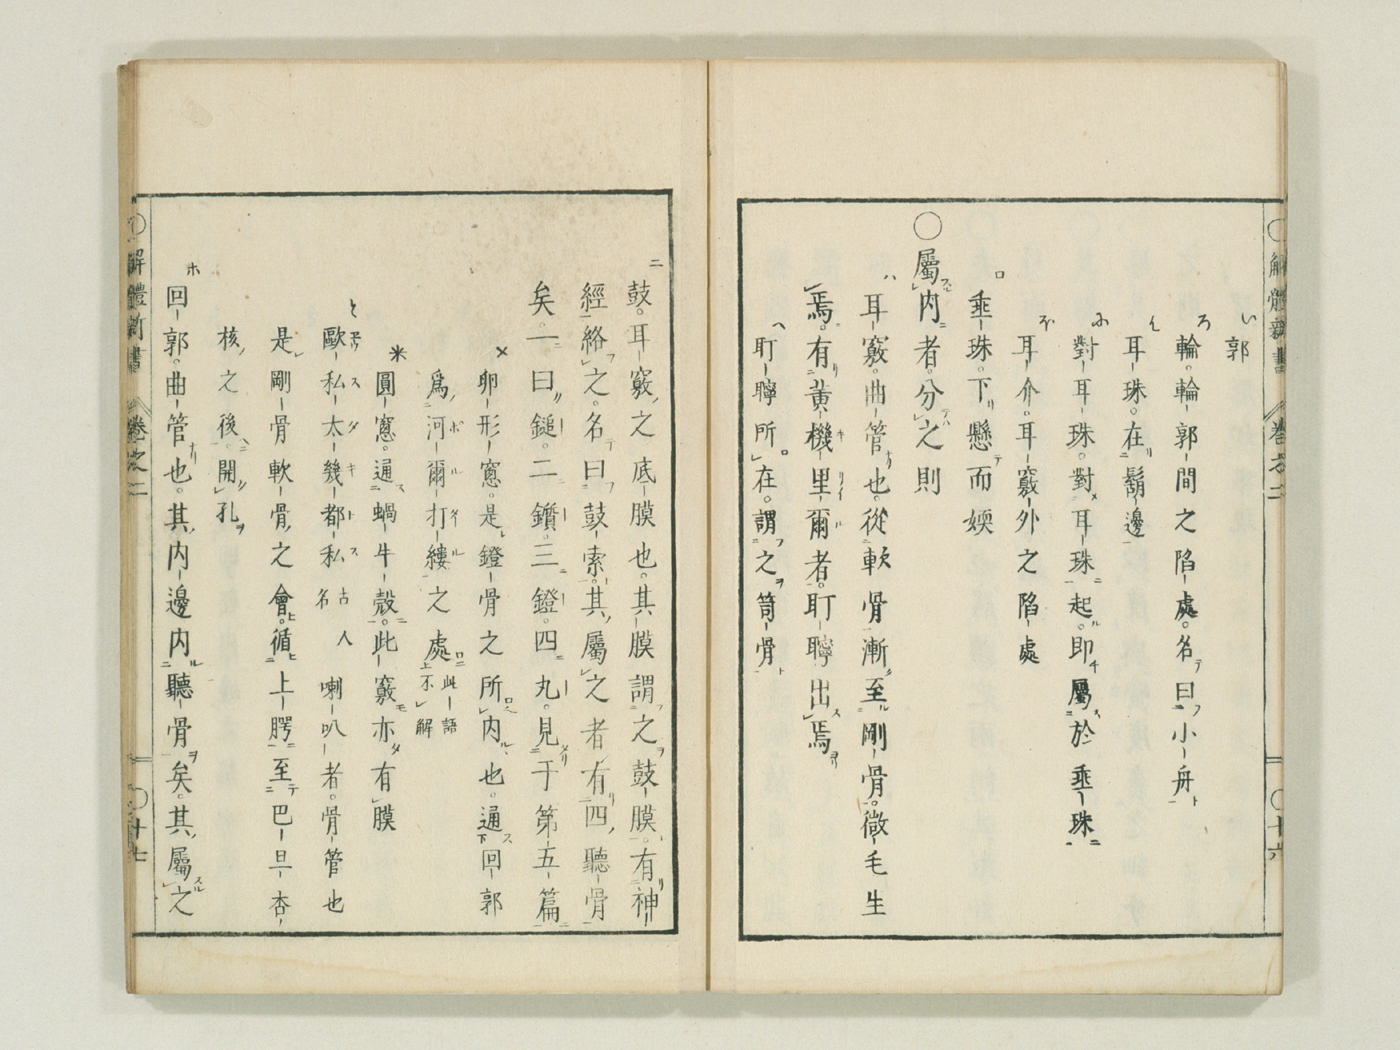 解體新書 卷之二 十六
い 郭
ろ 輪。輪郭間之陷處。名曰小舟
は 耳珠。在鬍邊
に 對耳珠。對耳珠起。即屬於垂珠
ほ 耳介。耳竅外之陷處
ロ 垂珠。下懸而䎡
〇屬內者。分之則
ハ 耳竅。曲管也。從軟骨漸至剛骨。微毛生
焉。有黃機里爾者。耵聹出焉
へ 耵聹所在。謂之笥骨
ニ 鼓。耳竅之底膜也。其膜謂之鼓膜。有神
經絡之。名曰鼓索。其屬之者有四聽骨
矣。一曰鎚。二鑽。三鐙。四丸。見于第五篇
× 卵形窻。是鐙骨之所內也。通回郭
爲河爾打縷之處 此語不解
米 圓窻。通蝸牛殼。此竅亦有膜
と 歐私太幾都私 古人名 喇叭者。骨管也
是剛骨軟骨之會。循上腭至巴旦杏
核之後。開孔
ホ 回郭。曲管也。其內邊內聽骨矣。其屬之
〇解體新書 卷之二 〇十七